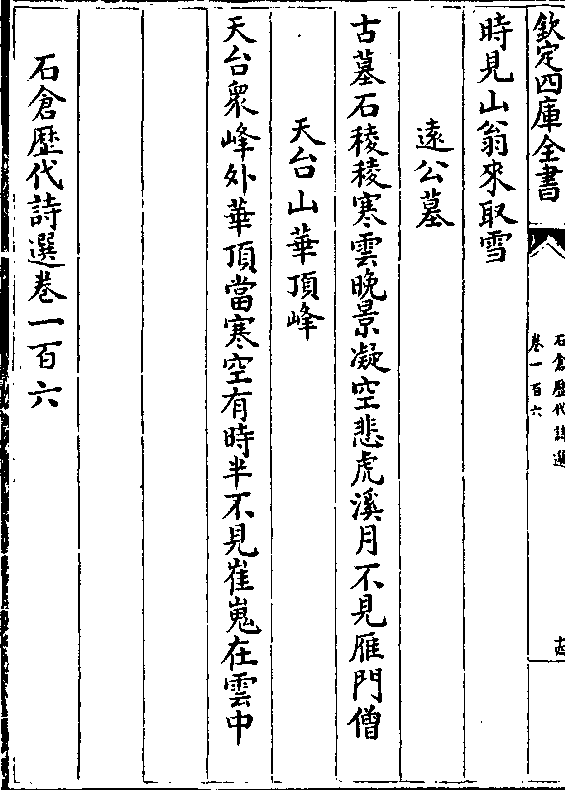 欽定四庫全書
石倉歷代詩選
卷一百六
時見山翁來取雪
遠公墓
古墓石稜稜寒雲晚景凝空悲虎溪月不見雁門僧
天台山華頂峰
天台衆峰外華頂當寒空有時半不見崔嵬在雲中
石倉歷代詩選卷一百六